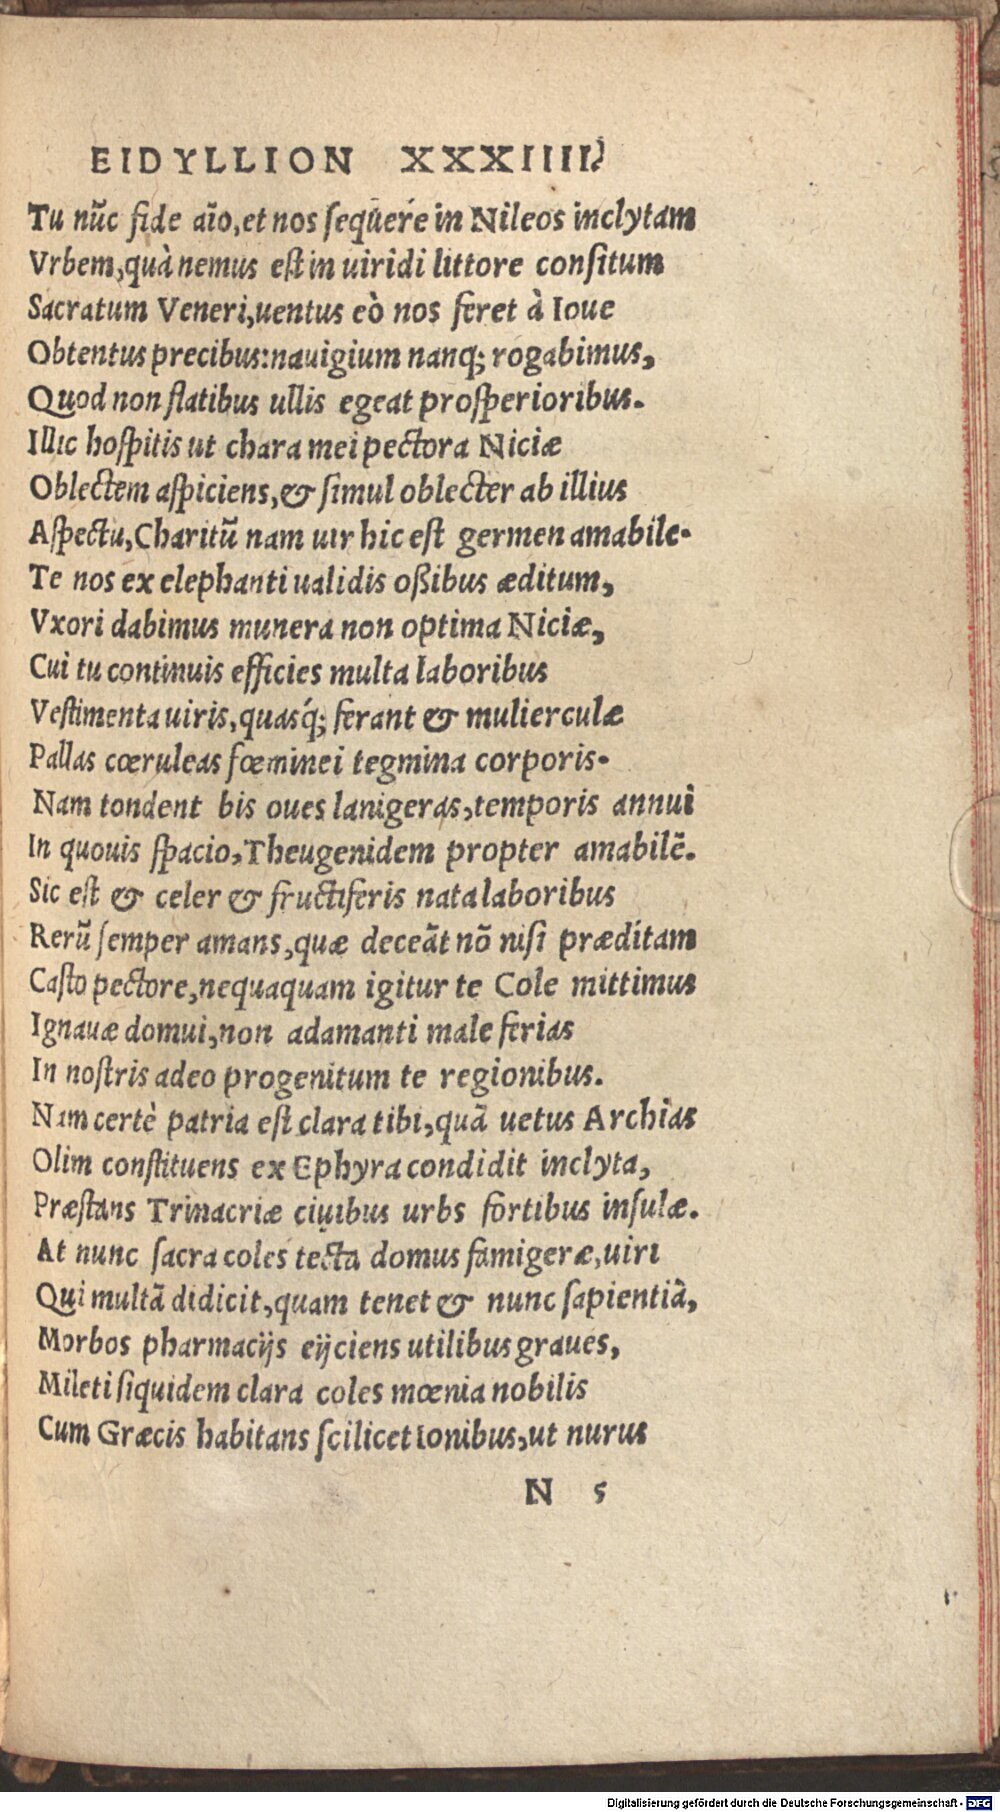 EIDYLLION XXXIIII.
Tu nūc fide aīo, et nos sequēre in Nileos inclytam
Vrbem, quà nemus est in uiridi littore consitum
Sacratum Veneri, uentus eò nos feret à Ioue
Obtentus precibus: nauigium nanq; rogabimus,
Quod non flatibus ullis egeat prosperioribus.
Illic hospitis ut chara mei pectora Niciæ
Oblectem aspiciens, & simul oblecter ab illius
Aspectu, Charitū nam uir hic est germen amabile.
Te nos ex elephanti ualidis oßibus æditum,
Vxori dabimus munera non optima Niciæ,
Cui tu continuis efficies multa laboribus
Vestimenta uiris, quasq́; ferant & mulierculæ
Pallas cœruleas fœminei tegmina corporis.
Nam tondent bis oues lanigeras, temporis annui
In quouis spacio, Theugenidem propter amabilē.
Sic est & celer & fructiferis nata laboribus
Rerū semper amans, quæ deceāt nō nisi præditam
Casto pectore, nequaquam igitur te Cole mittimus
Ignauæ domui, non adamanti male ferias
In nostris adeo progenitum te regionibus.
Nam certè patria est clara tibi, quā uetus Archias
Olim constituens ex Ephyra condidit inclyta,
Præstans Trinacriæ ciuibus urbs fortibus insulæ.
At nunc sacra coles tecta domus famigeræ, uiri
Qui multā didicit, quam tenet & nunc sapientiā,
Morbos pharmacijs eijciens utilibus graues,
Mileti siquidem clara coles mœnia nobilis
Cum Græcis habitans scilicet Ionibus, ut nurus
N 5
Digitalisierung gefördert durch die Deutsche Forschungsgemeinschaft - DFG